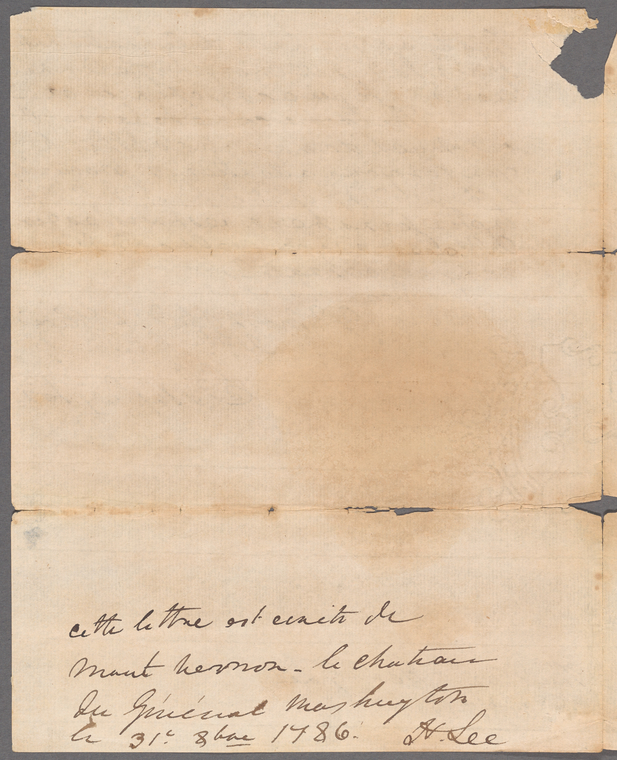 cette lettre est ecrite de
Mount Vernon - le chateau
du Général Washington
le 31.e 8bre 1786. H. Lee